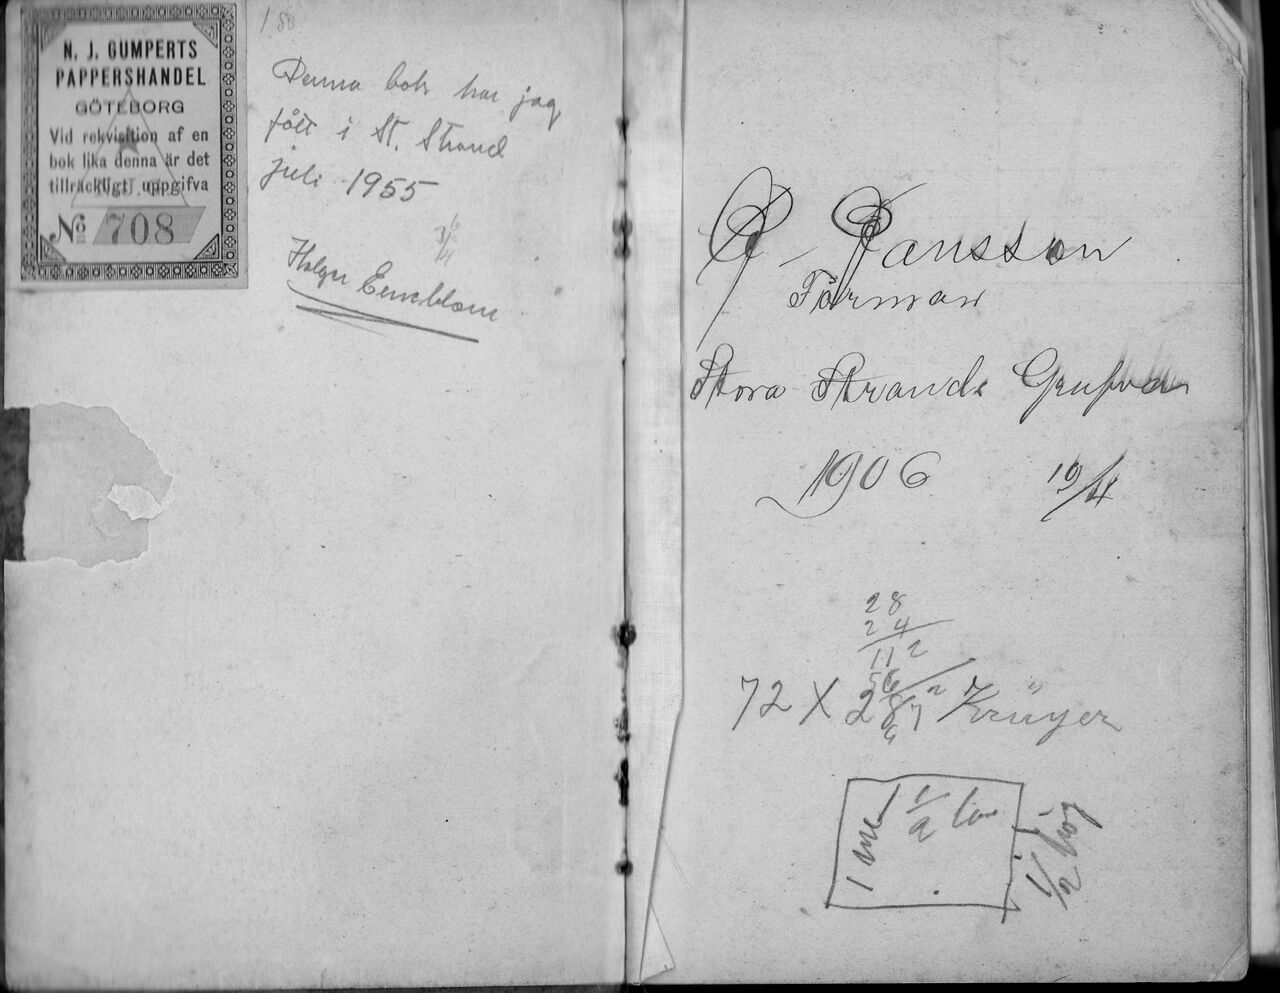 N. J. GUMPERTS
PAPPERSHANDEL
GÖTEBORG
Vid rekvisition af en
bok lika denna är det
tillräckligt uppgifva
No 708
Denna bok har jag
fått i St. Strand
juli 1955
Holger
Jansson
Förman
Stora Strands Grufva
1906 10/4
28
24
112
56
72 X
1/2
1/2 hög